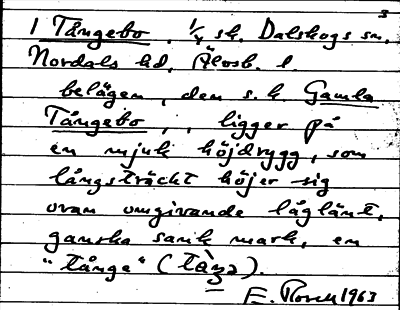 3
1 Tångebo. 1/4 sk. Dalskogs sn.
Nordals hd, Älvsb. l.
belägen, den s. k. Gamla
Tångebo, , ligger på
en mjuk höjdrygg, som
långsträckt höjer sig
ovan omgivande låglänt,
ganska sank mark, en
"tånge" (
E. 1963